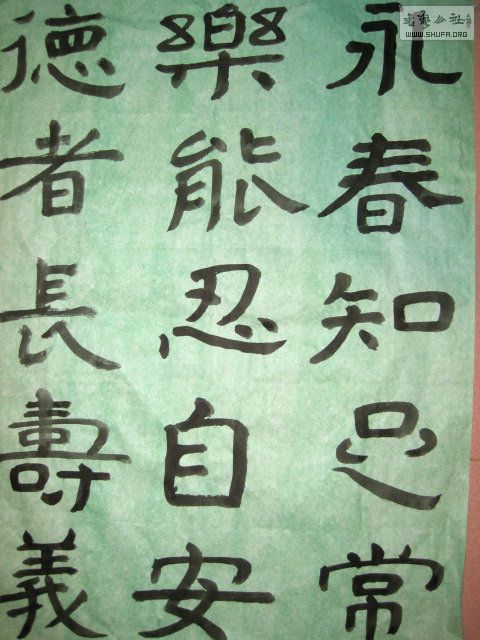 永春知足常
樂能忍自安
德者長壽義
WWW.SHUFA.ORG